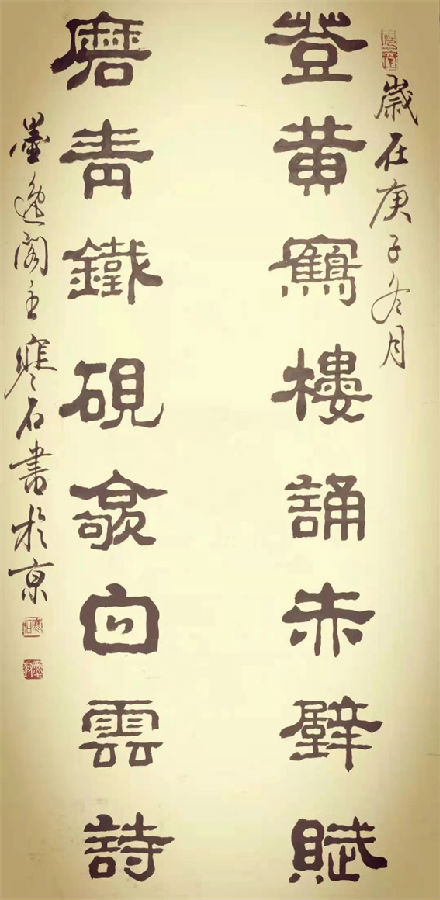 歲在庚子冬月
登黄鶴樓誦赤壁賦
磨青鐵硯白雲詩
墨逸閣主寒石書於京